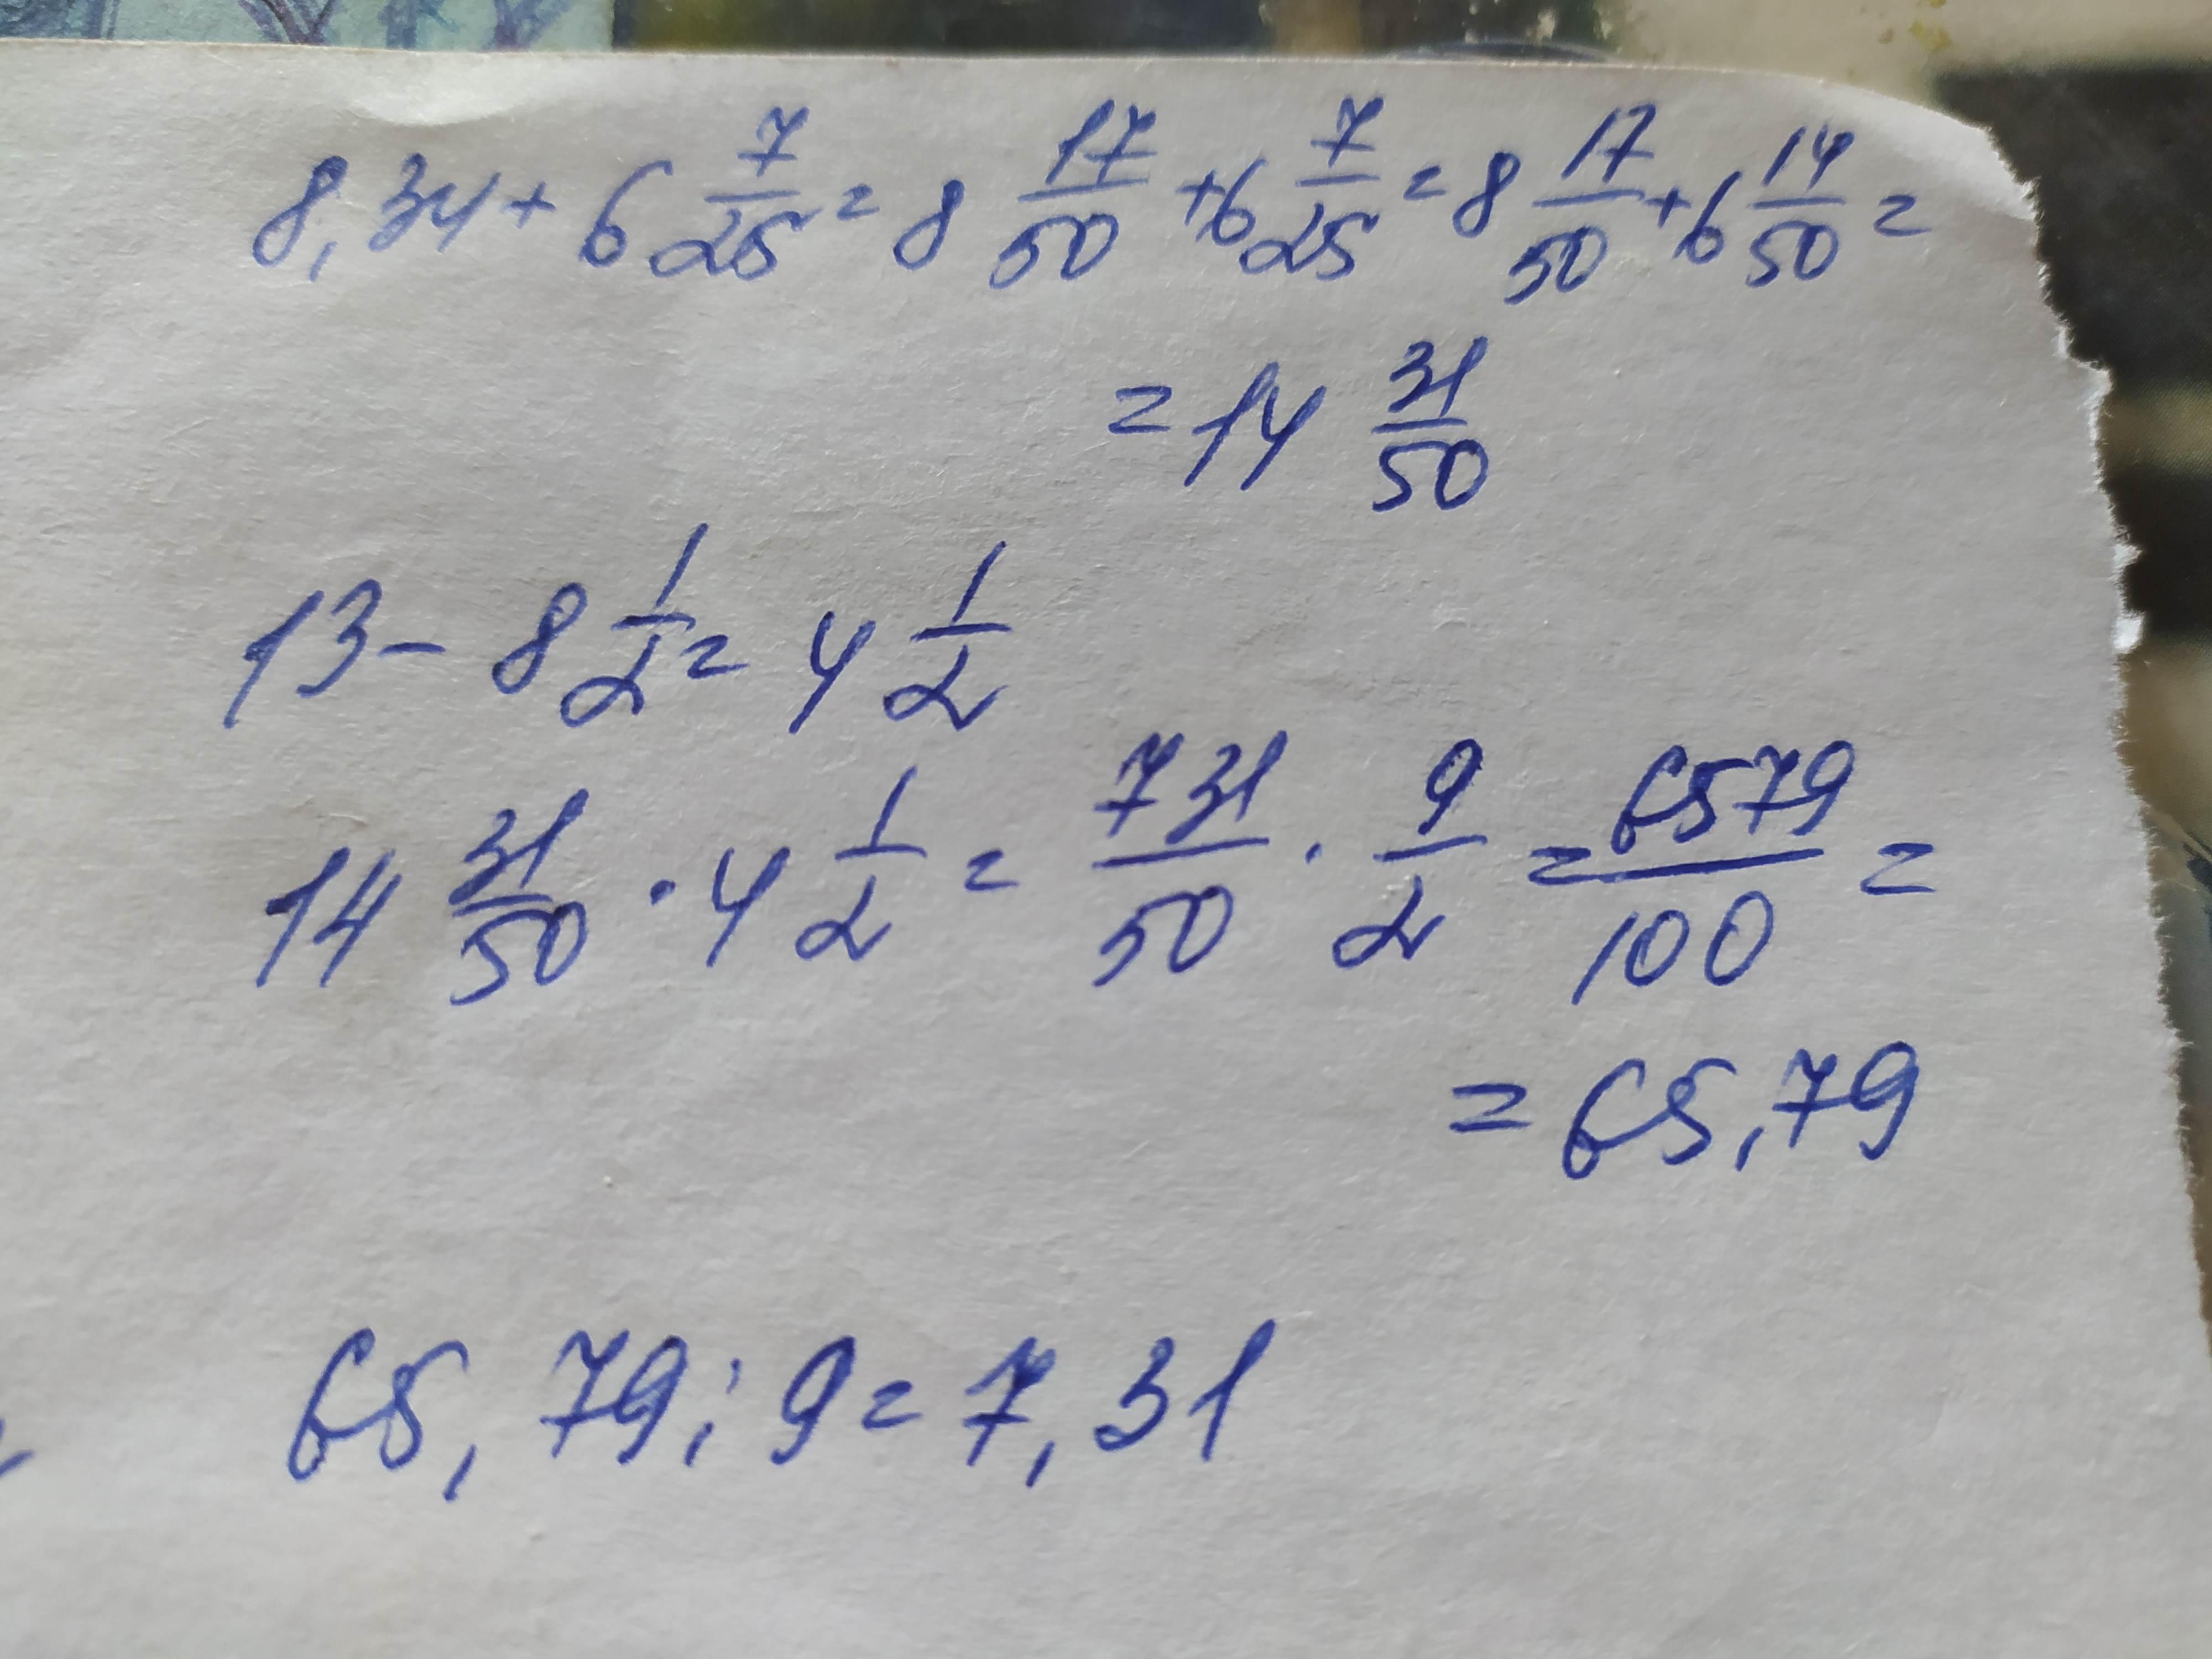 8,34 + 6 7/25 = 8 17/50 + 6 7/25 = 8 17/50 + 6 14/50 =
= 14 31/50
13 - 8 1/2 = 4 1/2
14 31/50 · 4 1/2 = 731/50 · 9/2 = 6579/100 =
= 65,79
65,79 : 9 = 7,31